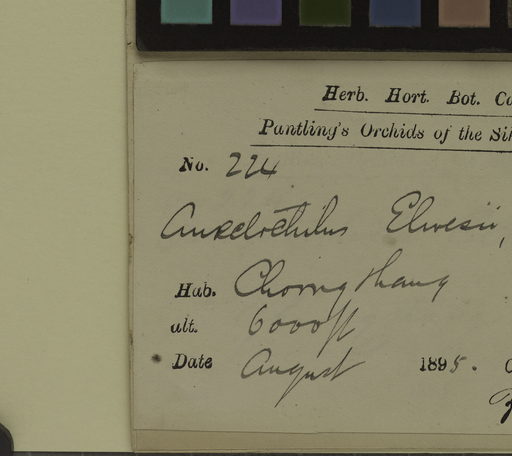 Herb. Hort. Bot. Ca
Pantling's Orchids of the Sik
No. 224
Anœctochilus Elwesii,
Hab. Chongthang
alt. 6000ft
Date August 1895.